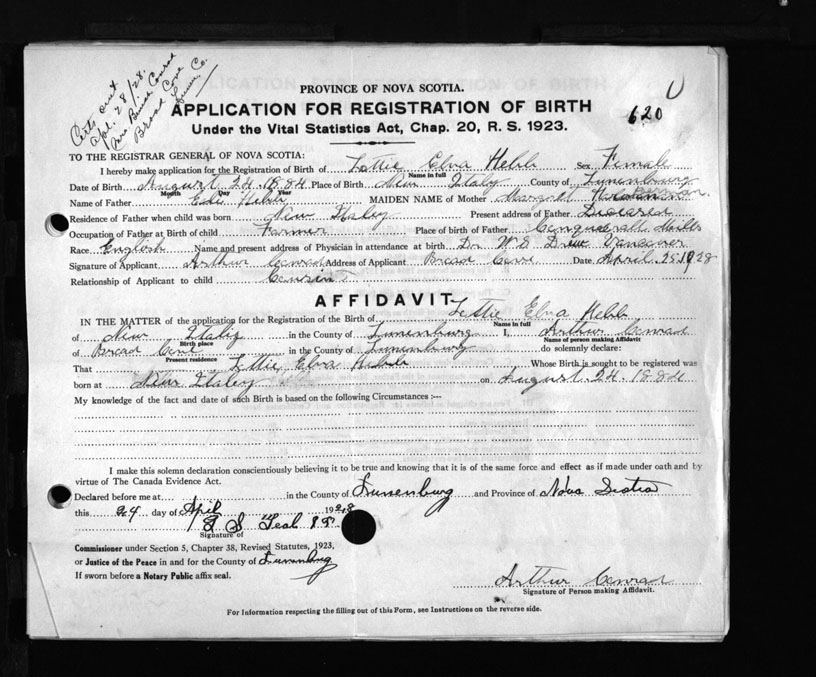 Certs out
Apl. 28/28.
Mrs Conrad
Broad Cove
Lunen. Co.
PROVINCE OF NOVA SCOTIA.
APPLICATION FOR REGISTRATION OF BIRTH
620
Under the Vital Statistics Act, Chap. 20, R. S. 1923.
TO THE REGISTRAR GENERAL OF NOVA SCOTIA:
I hereby make application for the Registration of Birth of Lottie Elva Hebb Sex Female
Name in full
Date of Birth August 24. 1884 Place of Birth New Italy County of Lunenburg
Month Day Year
Name of Father Hebb MAIDEN NAME of Mother Margret
Residence of Father when child was born New Italy Present address of Father Deceased
Occupation of Father at Birth of child Farmer Place of birth of Father Conquerall Mills
Race English Name and present address of Physician in attendance at birth Dr. W. D Drew
Signature of Applicant Arthur Conrad Address of Applicant Broad Cove Date April. 25. 1928
Relationship of Applicant to child
AFFIDAVIT
IN THE MATTER of the application for the Registration of the Birth of Lettie Elva Hebb
Name in full
of New Italy in the County of Lunenburg I, Arthur Conrad
Birth place Name of person making Affidavit
of Broad Cove in the County of Lunenburg do solemnly declare:
Present residence
That Lottie Elva Hebb Whose Birth is sought to be registered was
born at New Italey on August. 24. 1884
My knowledge of the fact and date of such Birth is based on the following Circumstances :—
I make this solemn declaration conscientiously believing it to be true and knowing that it is of the same force and effect as if made under oath and by
virtue of The Canada Evidence Act.
Declared before me at in the County of Lunenburg and Province of Nova Scotia
this 24 day of April 1928
S Teal
Signature of
Commissioner under Section 3, Chapter 38, Revised Statutes, 1923,
or Justice of the Peace in and for the County of Lunenburg
If sworn before a Notary Public affix seal.
Arthur Conrad
Signature of Person making Affidavit.
For Information respecting the filling out of this Form, see Instructions on the reverse side.